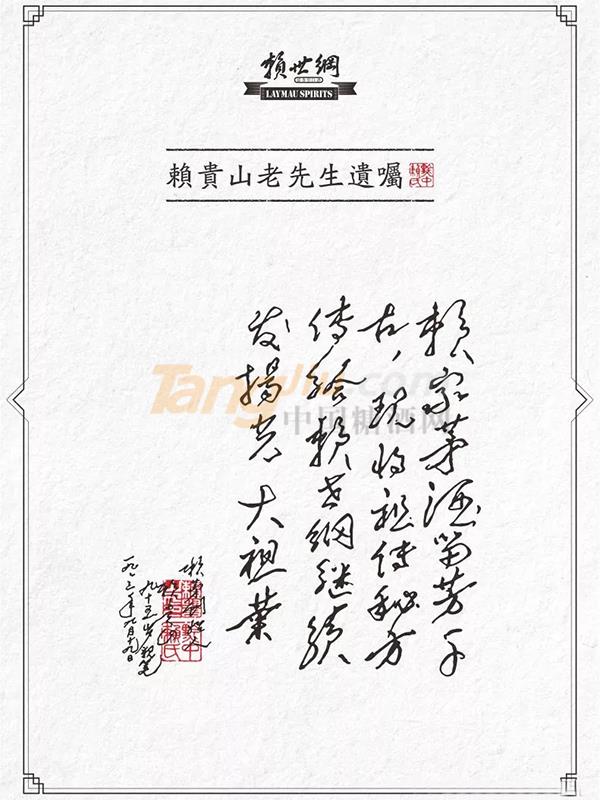 賴世綱
LAYMAU SPIRITS
賴貴山老先生遺囑
賴家茅酒留芳千
古，现将祖传秘方
傳給賴世綱継续
发揚光大祖業
九十五岁親筆
一九八三年九月十九日
Tangjiu.com
中国糖酒网